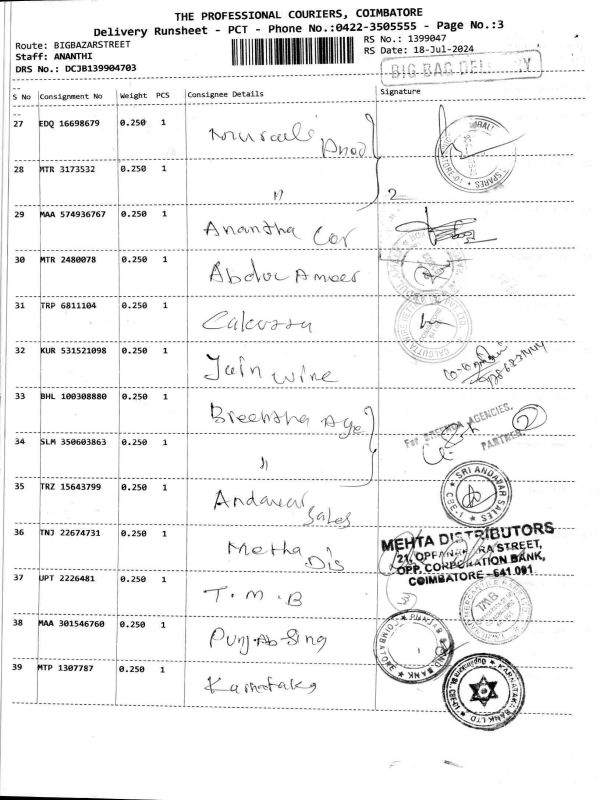 THE PROFESSIONAL COURIERS, COIMBATORE
Delivery Runsheet - PCT - Phone No.:0422-3505555 - Page No.:3
Route: BIGBAZARSTREET
RS No.: 1399047
Staff: ANANTHI
RS Date: 18-Jul-2024
DRS No.: DCJB139904703
BIG BAG DELIVERY
S No Consignment No Weight PCS Consignee Details Signature
27 EDQ 16698679 0.250 1 Murali Prod
28 MTR 3173532 0.250 1 " 2
29 MAA 574936767 0.250 1 Anantha Cor
30 MTR 2480078 0.250 1 Abdul Ameer
31 TRP 6811104 0.250 1
32 KUR 531521098 0.250 1 Jain wine
33 BHL 100308880 0.250 1 Breentha Age
For BREENDA AGENCIES,
PARTNER
2
34 SLM 350603863 0.250 1 "
35 TRZ 15643799 0.250 1 Andavar Sales
SRI ANDAVAR SALES
CBE-1
36 TNJ 22674731 0.250 1 Metha Dis
MEHTA DISTRIBUTORS
OPP. CORPORATION BANK,
COIMBATORE - 641 001
37 UPT 2226481 0.250 1 T.M.B
TMB
38 MAA 301546760 0.250 1 Punjab-Sing
PUNJAB & SIND BANK
COIMBATORE
39 MTP 1307787 0.250 1 Karnataka
KARNATAKA BANK LTD